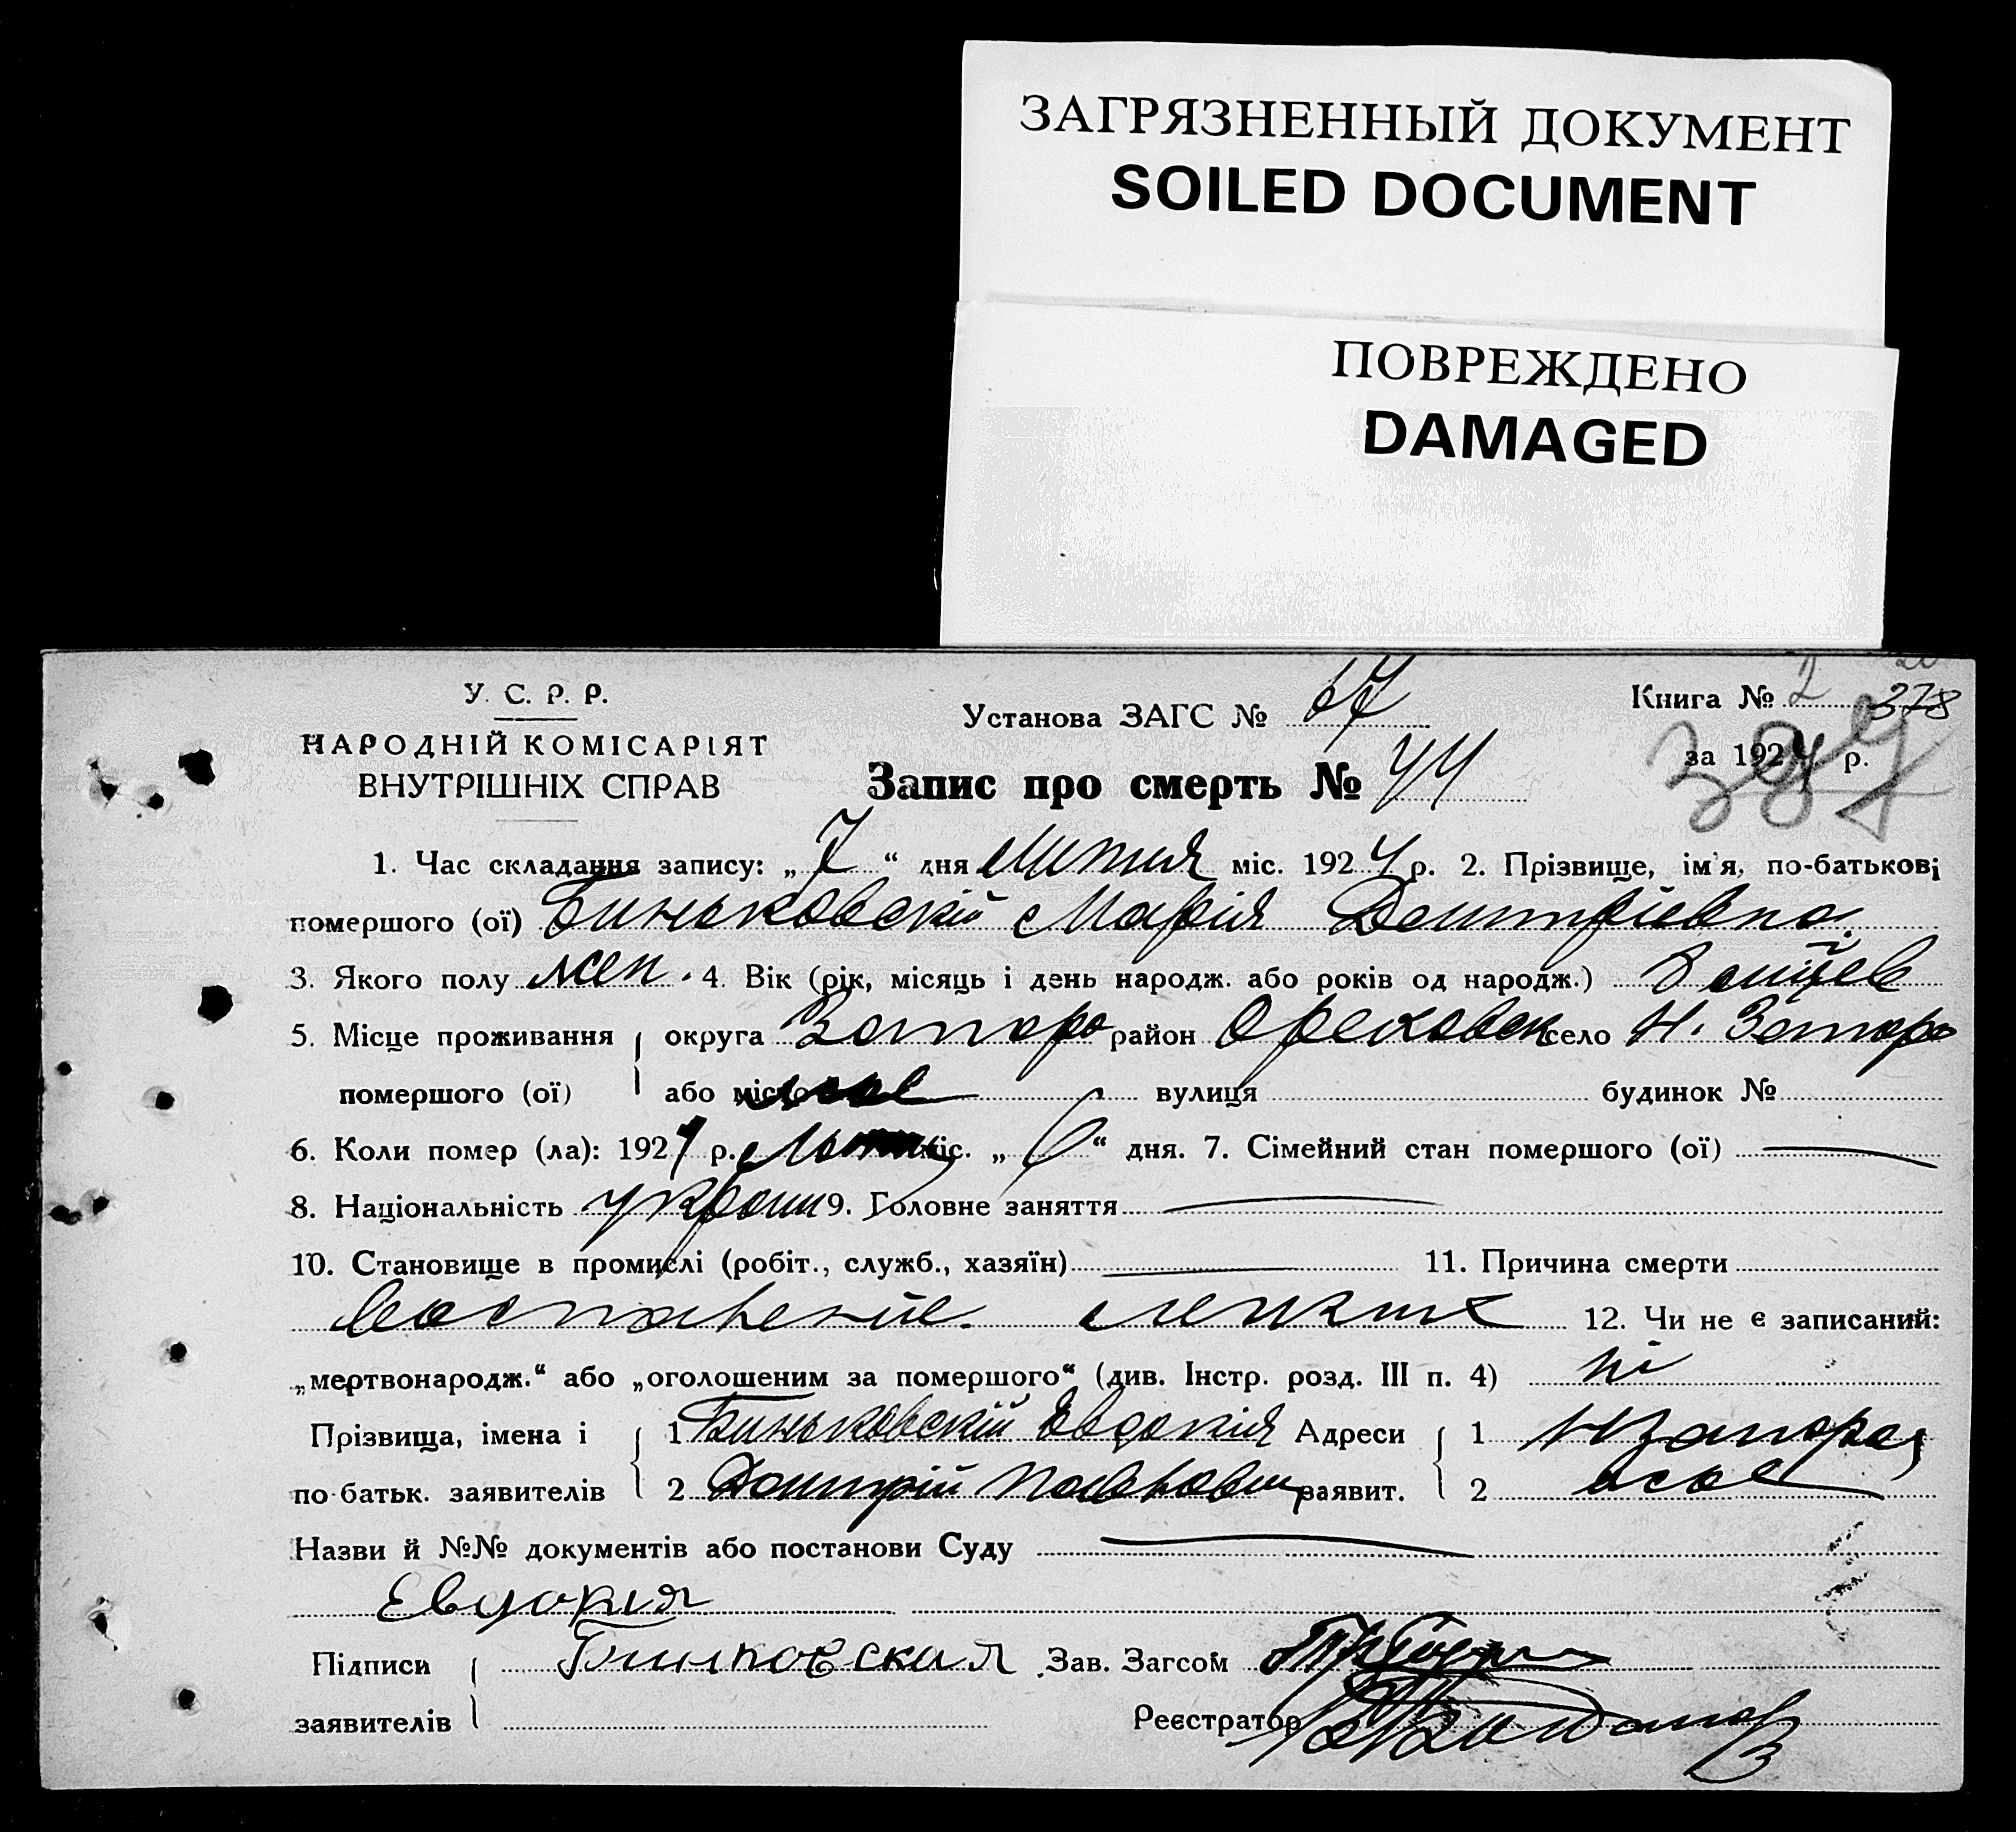 ЗАГРЯЗНЕННЫЙ ДОКУМЕНТ
SOILED DOCUMENT
ПОВРЕЖДЕНО
DAMAGED
У. С. Р. Р.
НАРОДНІЙ КОМІСАРІЯТ
ВНУТРІШНІХ СПРАВ
Установа ЗАГС № 67
Книга № 2 378
за 1924 р.
Запис про смерть № 44
1. Час складання запису: „ 7 “ дня міс. 1924 р. 2. Прізвище, ім'я, по-батькові
помершого (ої) Биньковскій Марія Дмитріевна.
3. Якого полу жен. 4. Вік (рік, місяць і день народж. або років од народж.) 8
5. Місце проживання округа Запоро район Ореховск село Н. Запоро
помершого (ої) або місто жье вулиця будинок №
6. Коли помер (ла): 1924 р. міс. „ 6 “ дня. 7. Сімейний стан помершого (ої)
8. Національність україн 9. Головне заняття
10. Становище в промислі (робіт., служб., хазяїн) 11. Причина смерти
Воспаление легких 12. Чи не є записаний:
„мертвонародж.“ або „оголошеним за помершого“ (див. Інстр. розд. III п. 4) ні
Прізвища, імена і 1 Биньковскій Явдокія Адреси 1 Н Запорож
по батьк. заявителів 2 Дмитрій заявит. 2
Назви й №№ документів або постанови Суду
Евдокия
Підписи Бинковская Зав. Загсом
заявителів Реєстратор